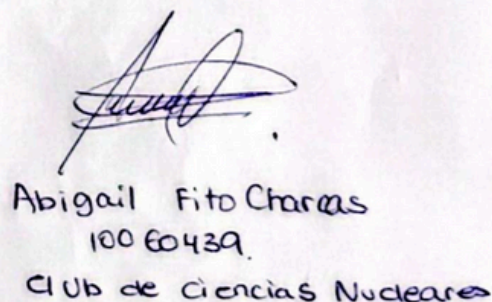 Abigail Fito Charcas
10060439.
Club de Ciencias Nucleares